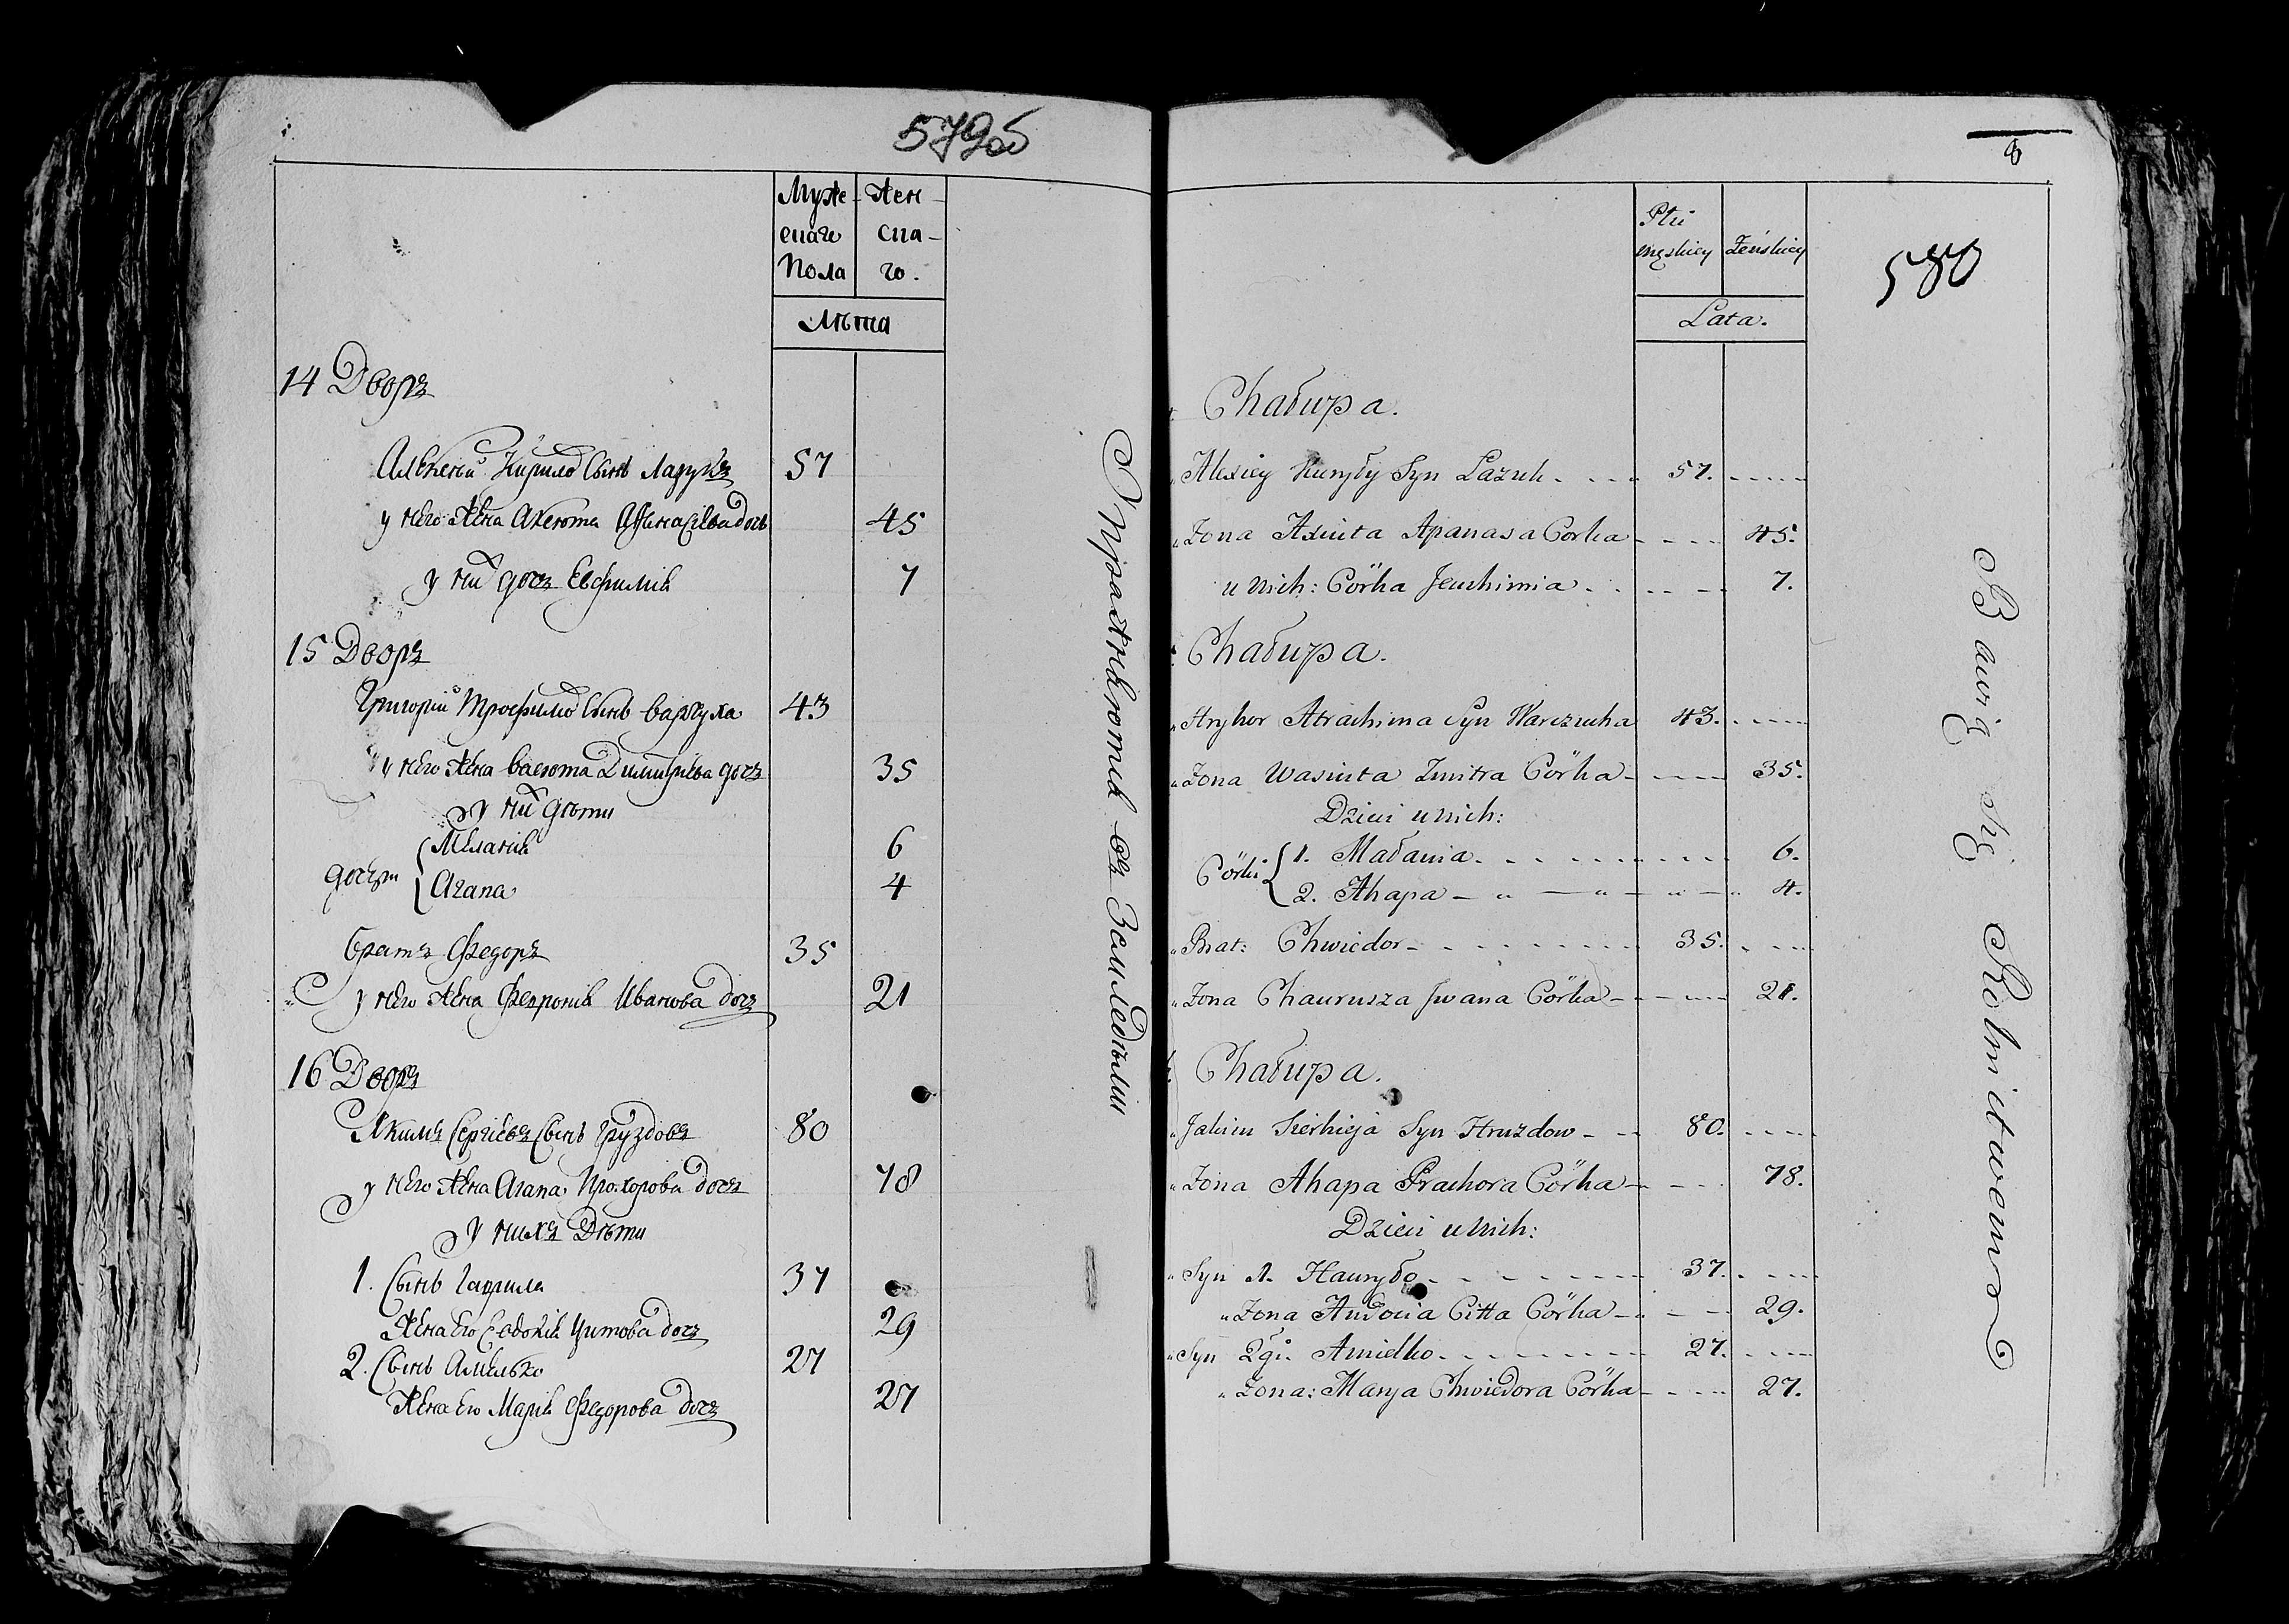 579об
Муже- Жен-
скаго ска-
Пола го.
Лѣта
14 Дворъ
Алексѣй Кирилов Сынъ Лазукъ 57
у него Жена Аксюта Афанасіева дочь 45
у них дочъ Евфимія 7
15 Дворъ
Григорій Трофимов Сынъ Варчуха 43
у него Жена Васюта Димитріева дочъ 35
у них дѣти
дочери { Меланія 6
Агапа 4
братъ Федоръ 35
у него Жена Февронія Иванова дочъ 21
16 Дворъ
Якимъ Сергіевъ Сынъ Груздовъ 80
у него Жена Агапа Прохорова дочъ 78
у нихъ Дѣти
1. Сынъ Гаврила 37
Жена Его Евдокія Титова дочъ 29
2. Сынъ Амелько 27
Жена Его Марія Федорова дочъ 27
Упражняются въ Земледѣлии
8
580
Płci
męskiey Żeńskiey
Lata.
Chałupa.
Alexiey Kuryły Syn Łazuk 57.
Żona Axiuta Apanasa Corka 45.
u Nich: Córka Jeuchimia 7.
Chałupa.
Hryhor Atrachima Syn Warczucha 43.
Żona Wasiuta Zmitra Córka 35.
Dzieci u Nich:
Córki { 1. Małania 6.
2. Ahapa 4.
Brat: Chwiedor 35.
Żona Chaurusza Jwana Córka 21.
Chałupa.
Jakim Sierhieja Syn Hruzdow 80.
Żona Ahapa Prachora Córka 78.
Dzieci u Nich:
Syn 1. Hauryło 37.
Żona Audocia Citta Córka 29.
Syn 2gi. Amielko 27.
Żona: Marya Chwiedora Córka 27.
Bawią się Rolnictwem